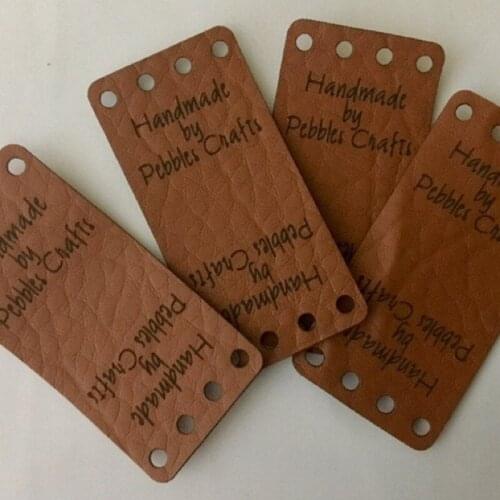 Handmade
by
Pebbles Crafts
Handmade
by
Pebbles Crafts
Handmade
by
Pebbles Crafts
by
Pebbles Crafts
Handmade
by
Pebbles Crafts
Handmade
by
Pebbles Crafts
Handmade
by
Pebbles